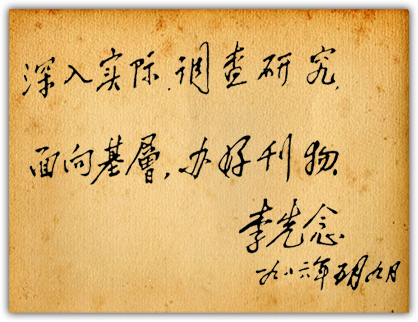 深入实际，调查研究，
面向基層，办好刊物。
李先念
一九八六年五月九日